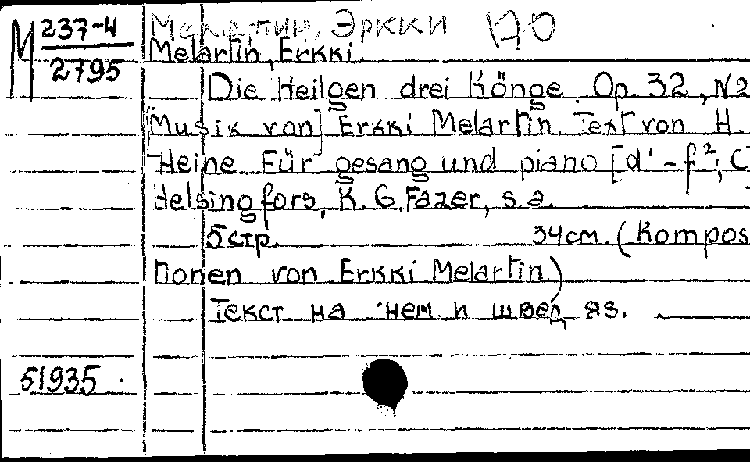 М 237-4
2795
Мелартин, Эркки 170
Melartin, Erkki.
Die Heilgen drei Könge. Op. 32, N2
[Musik von] Erkki Melartin. Text von H.
Heine. Für gesang und piano [d¹-f²; C]
Helsingfors, K. G. Fazer, s.a.
5 стр. 34 см. (Kompos
tionen von Erkki Melartin)
Текст на нем и швед яз.
51935